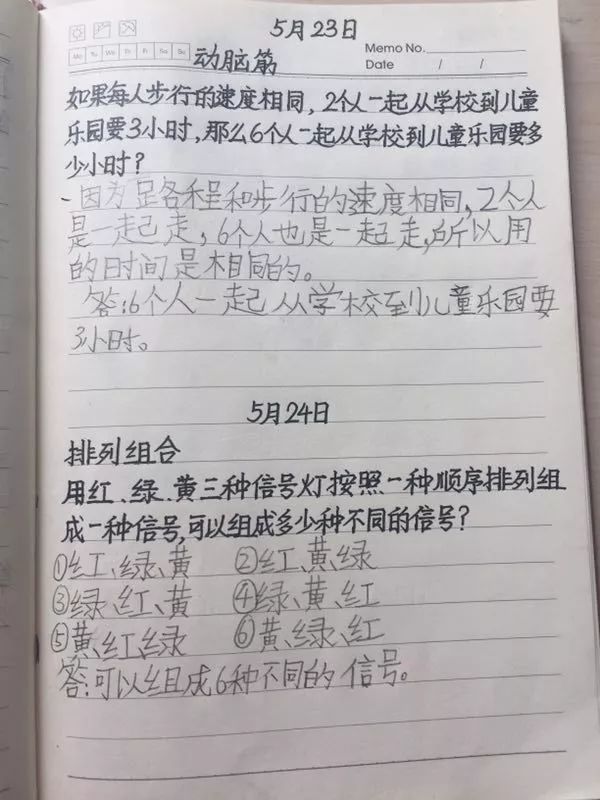 5月23日
Mo Tu We Th Fr Sa Su
动脑筋
Memo No.
Date / /
如果每人步行的速度相同,2个人一起从学校到儿童
乐园要3小时,那么6个人一起从学校到儿童乐园要多
少小时?
因为路程和步行的速度相同,2个人
是一起走,6个人也是一起走,所以用
的时间是相同的。
答:6个人一起从学校到儿童乐园要
3小时。
5月24日
排列组合
用红、绿、黄三种信号灯按照一种顺序排列组
成一种信号,可以组成多少种不同的信号?
①红、绿、黄 ②红、黄、绿
③绿、红、黄 ④绿、黄、红
⑤黄、红、绿 ⑥黄、绿、红
答:可以组成6种不同的信号。